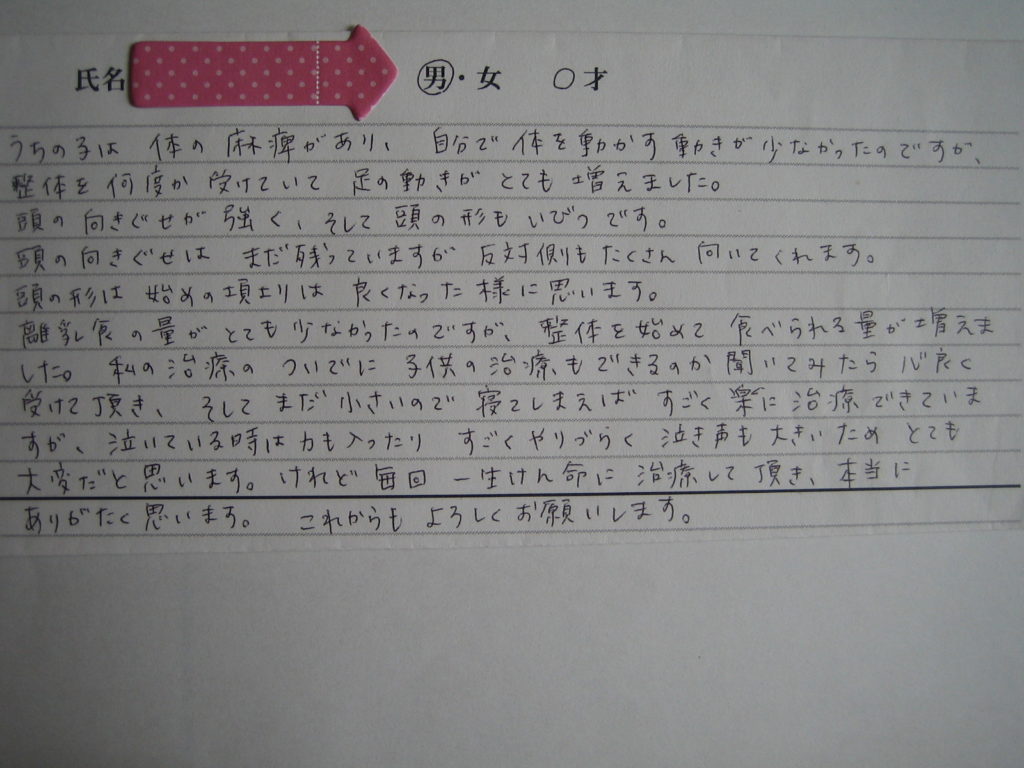 氏名 男・女 ○才
うちの子は 体の麻痺があり、 自分で体を動かす動きが少なかったのですが、
整体を何度か受けていて 足の動きが とても増えました。
頭の向きぐせが強く、そして頭の形もいびつです。
頭の向きぐせは まだ残っていますが 反対側もたくさん向いてくれます。
頭の形は始めの頃よりは 良くなった様に思います。
離乳食の量がとても少なかったのですが、整体を始めて 食べられる量が増えま
した。 私の治療の ついでに 子供の治療もできるのか聞いてみたら 心良く
受けて頂き、 そしてまだ小さいので 寝てしまえば すごく楽に治療できていま
すが、泣いている時は力も入ったり すごくやりづらく 泣き声も大きいため とても
大変だと思います。けれど毎回 一生けん命に 治療して頂き、本当に
ありがたく思います。 これからも よろしくお願いします。